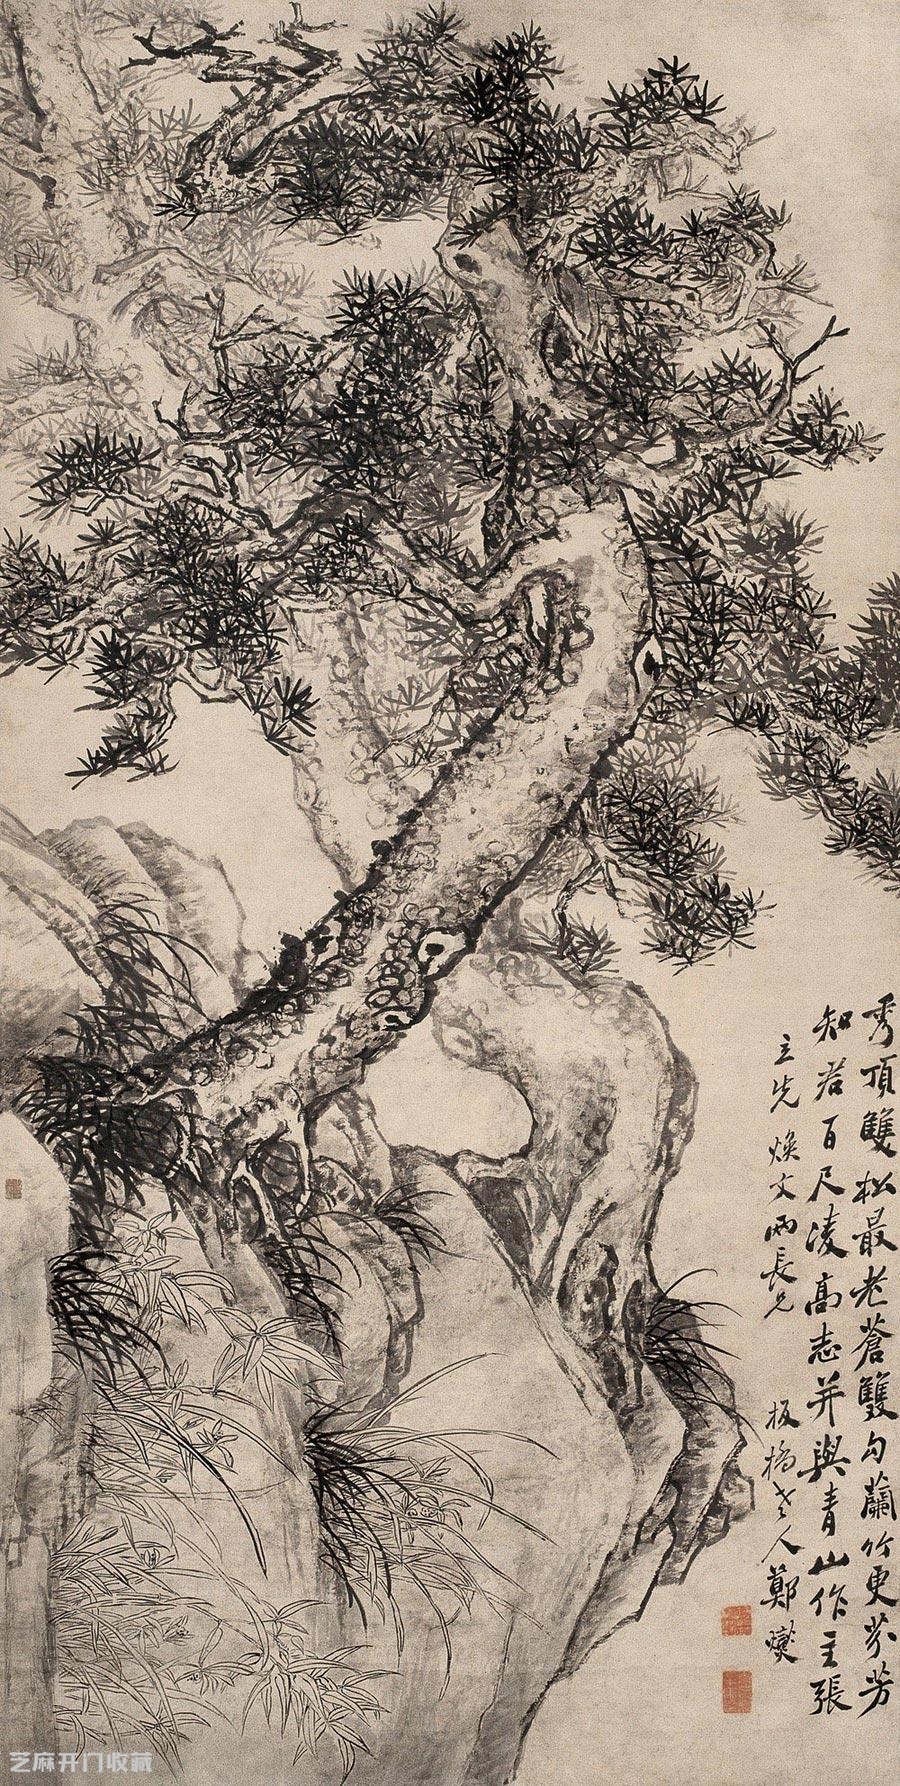 秀頂雙松最老蒼雙勾蘭竹更芬芳
知君百尺淩高志并與青山作主張
立先煥文兩長兄
板橋老人鄭燮
芝麻开门收藏